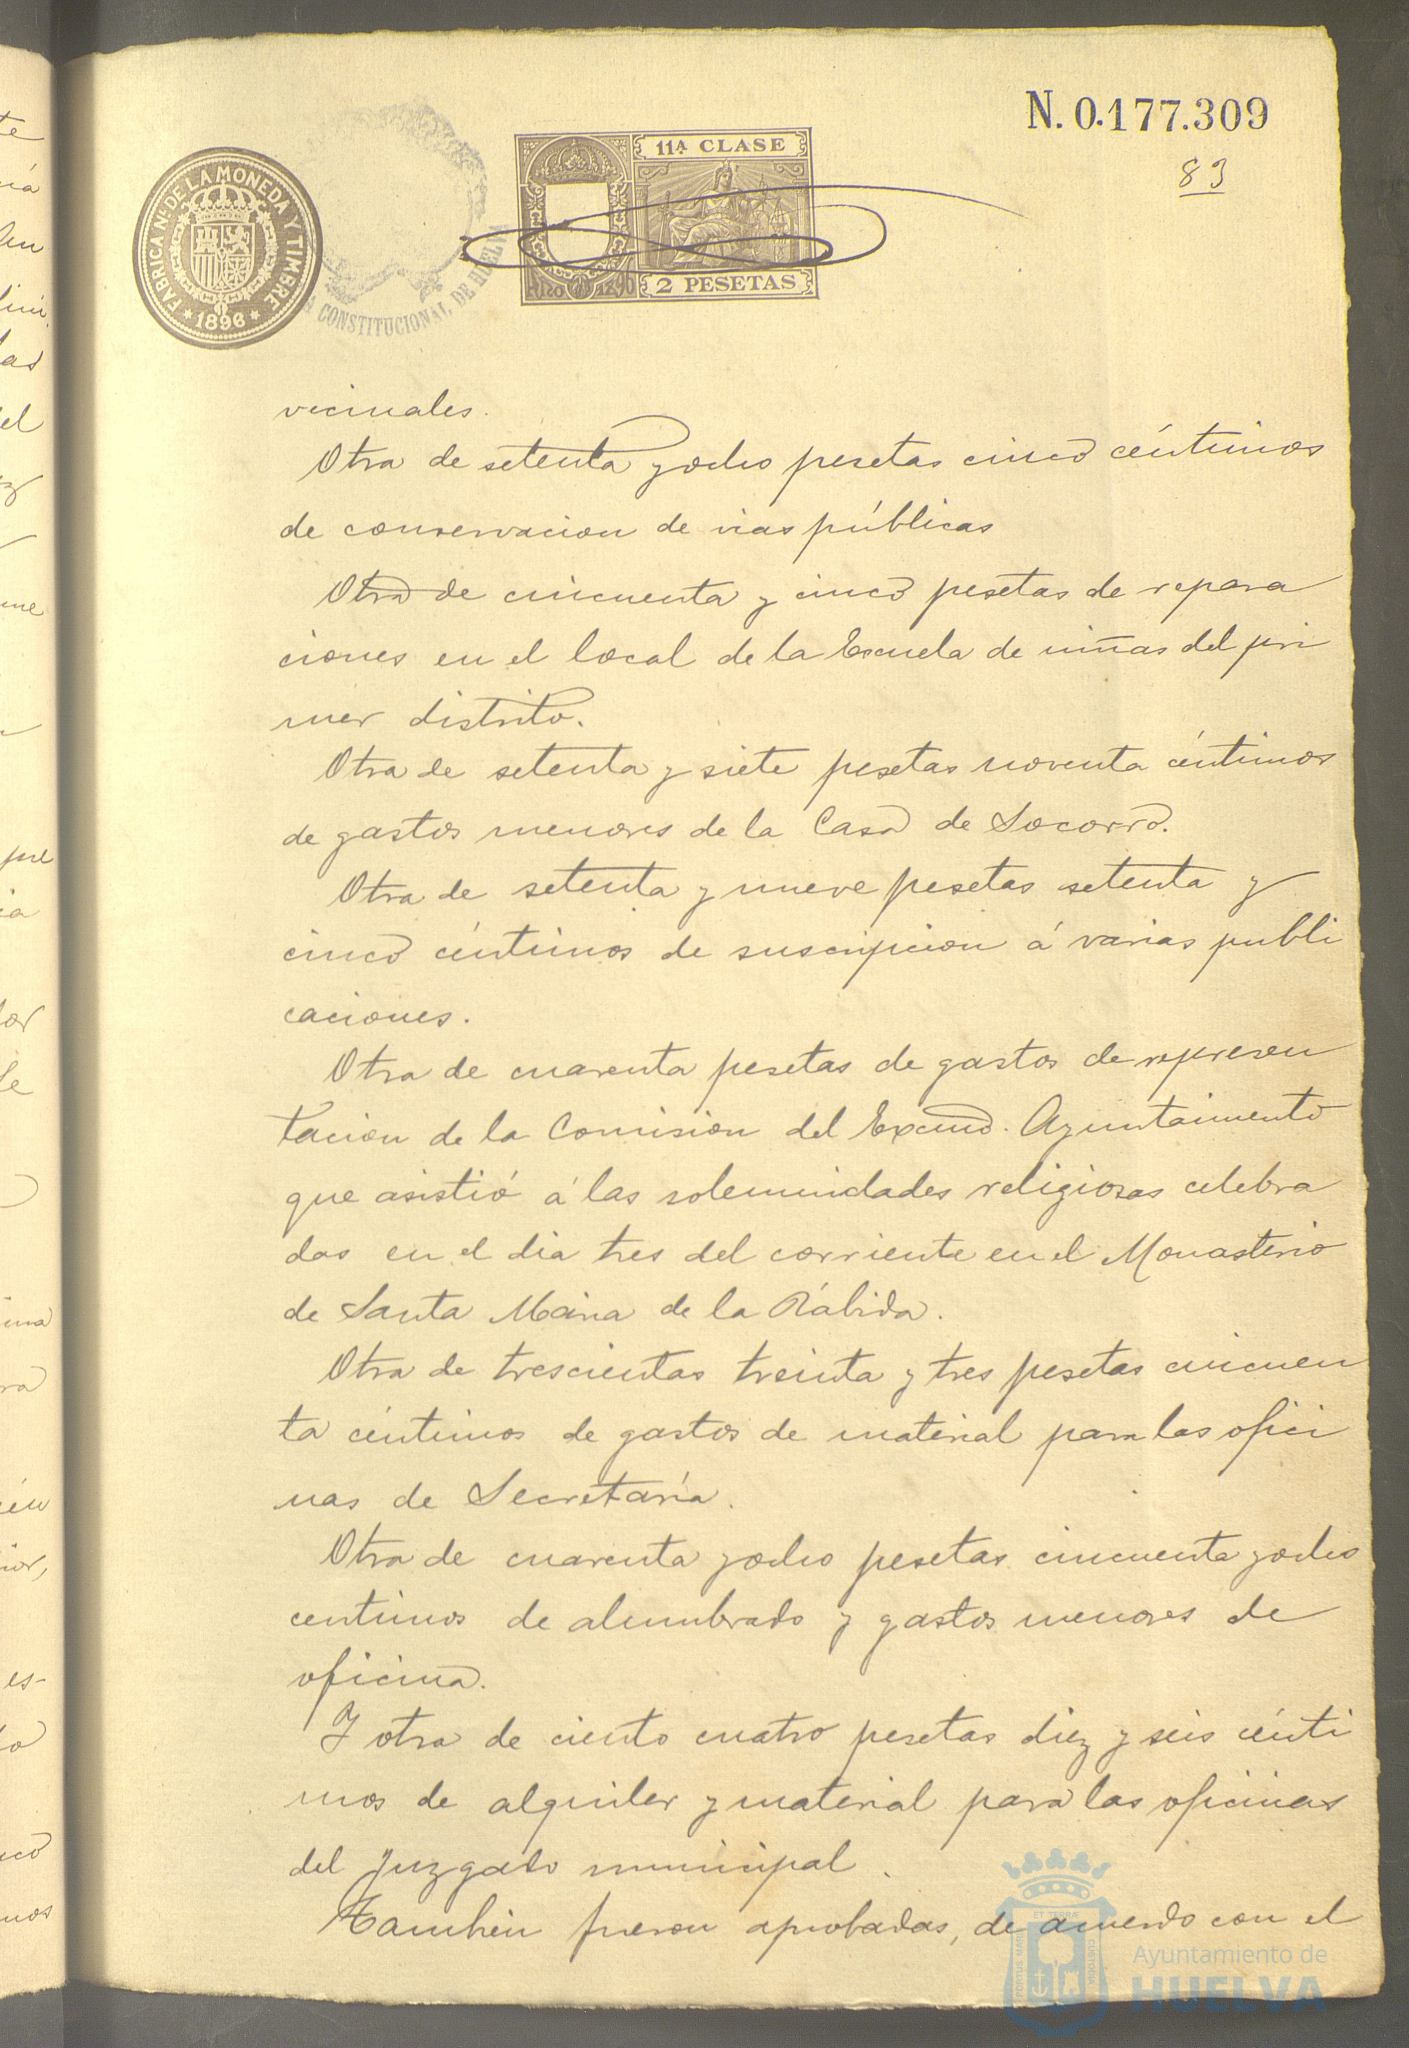 N. 0.177.309
83
FABRICA N.L DE LA MONEDA Y TIMBRE
1896
CONSTITUCIONAL DE HUELVA
11ª CLASE
2 PESETAS
vecinales.
Otra de setenta y ocho pesetas cinco céntimos
de conservacion de vias públicas
Otra de cincuenta y cinco pesetas de repara
ciones en el local de la Escuela de niñas del pri
mer distrito.
Otra de setenta y siete pesetas noventa céntimos
de gastos menores de la Casa de Socorro.
Otra de setenta y nueve pesetas setenta y
cinco céntimos de suscripcion á varias publi
caciones.
Otra de cuarenta pesetas de gastos de represen
tacion de la Comision del Excmo. Ayuntamiento
que asistió á las solemnidades religiosas celebra
das en el dia tres del corriente en el Monasterio
de Santa Maria de la Rábida.
Otra de trescientas treinta y tres pesetas cincuen
ta céntimos de gastos de material para las ofici
nas de Secretaría.
Otra de cuarenta y ocho pesetas cincuenta y ocho
centimos de alumbrado y gastos menores de
oficina.
Y otra de ciento cuatro pesetas diez y seis cénti
mos de alquiler y material para las oficinas
del Juzgado municipal.
Tambien fueron aprobadas, de acuerdo con el
Ayuntamiento de
HUELVA